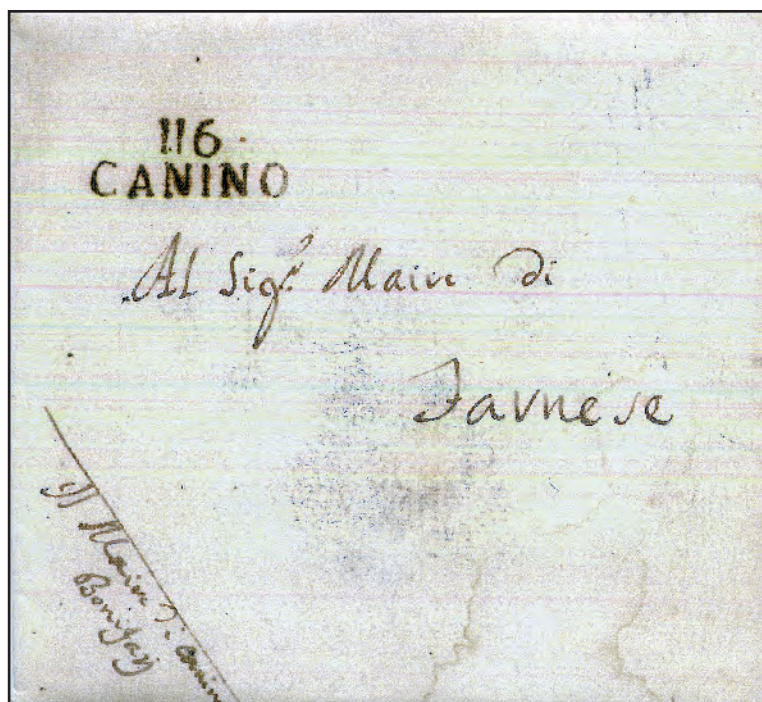 116
CANINO
Al Sig.r Maire di
Farnese
Il Maire di Canino